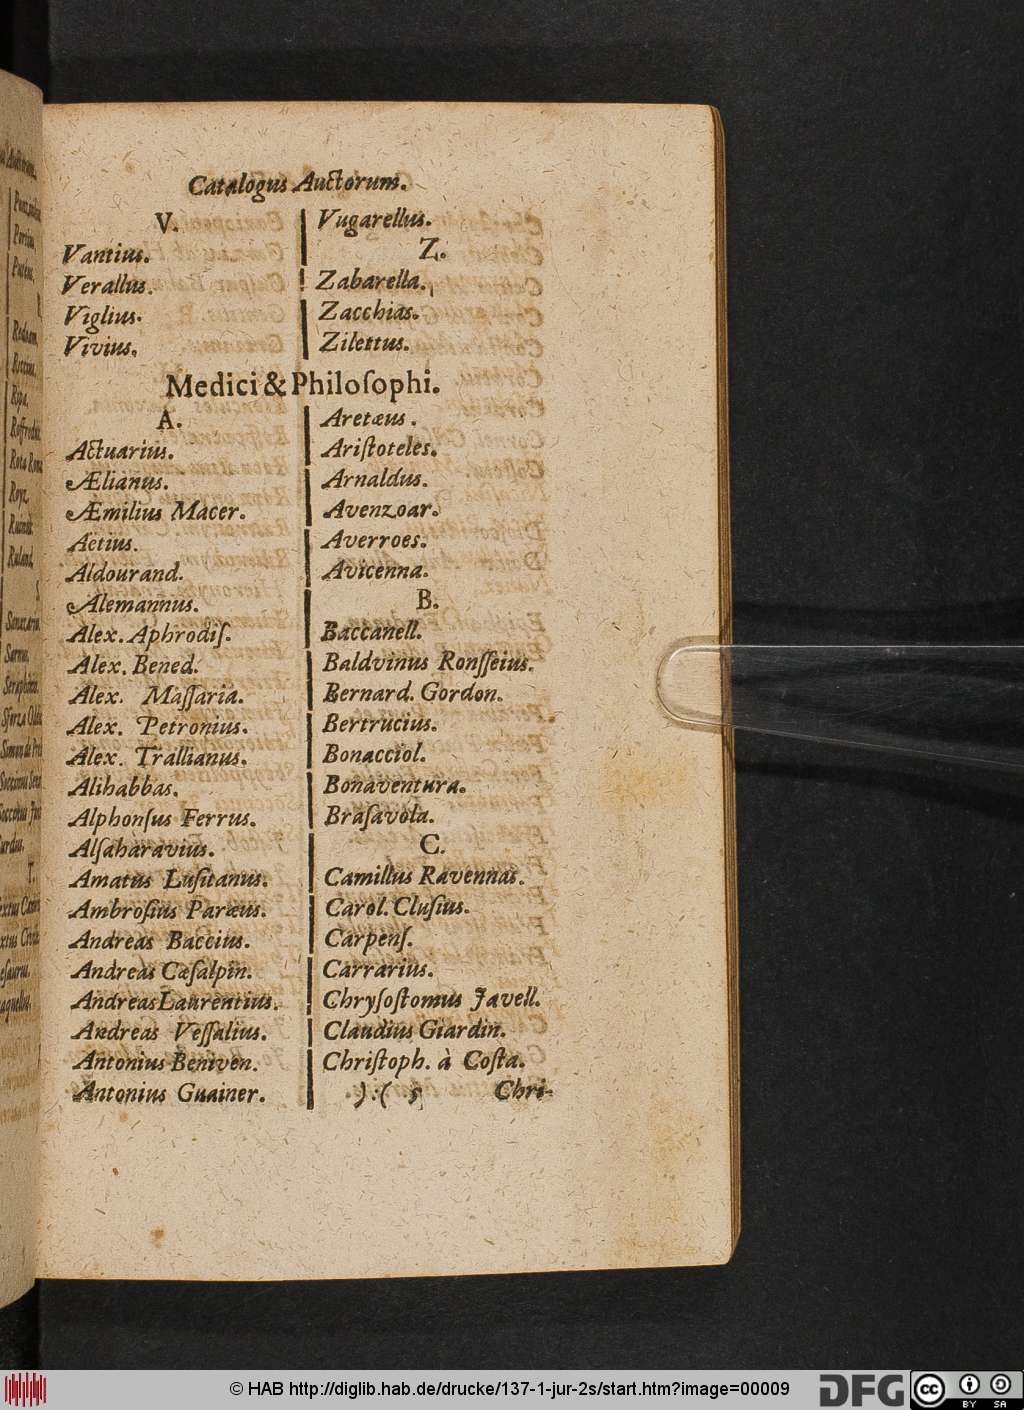 Catalogus Auctorum.
V.
Vantius.
Verallus.
Viglius.
Vivius.
Vugarellus.
Z.
Zabarella.
Zacchias.
Zilettus.
Medici & Philoſophi.
A.
Actuarius.
Ælianus.
Æmilius Macer.
Aetius.
Aldourand.
Alemannus.
Alex. Aphrodiſ.
Alex. Bened.
Alex. Maſſaria.
Alex. Petronius.
Alex. Trallianus.
Alihabbas.
Alphonſus Ferrus.
Alſaharavius.
Amatus Luſitanus.
Ambroſius Paræus.
Andreas Baccius.
Andreas Cæſalpin.
Andreas Laurentius.
Andreas Veſſalius.
Antonius Beniven.
Antonius Guainer.
Aretæus.
Ariſtoteles.
Arnaldus.
Avenzoar.
Averroes.
Avicenna.
B.
Baccanell.
Baldvinus Ronſſeius.
Bernard. Gordon.
Bertrucius.
Bonacciol.
Bonaventura.
Braſavola.
C.
Camillus Ravennas.
Carol. Cluſius.
Carpenſ.
Carrarius.
Chryſoſtomus Javell.
Claudius Giardin.
Chriſtoph. à Coſta.
):( 5 Chri-
© HAB http://diglib.hab.de/drucke/137-1-jur-2s/start.htm?image=00009
DFG
cc
BY SA